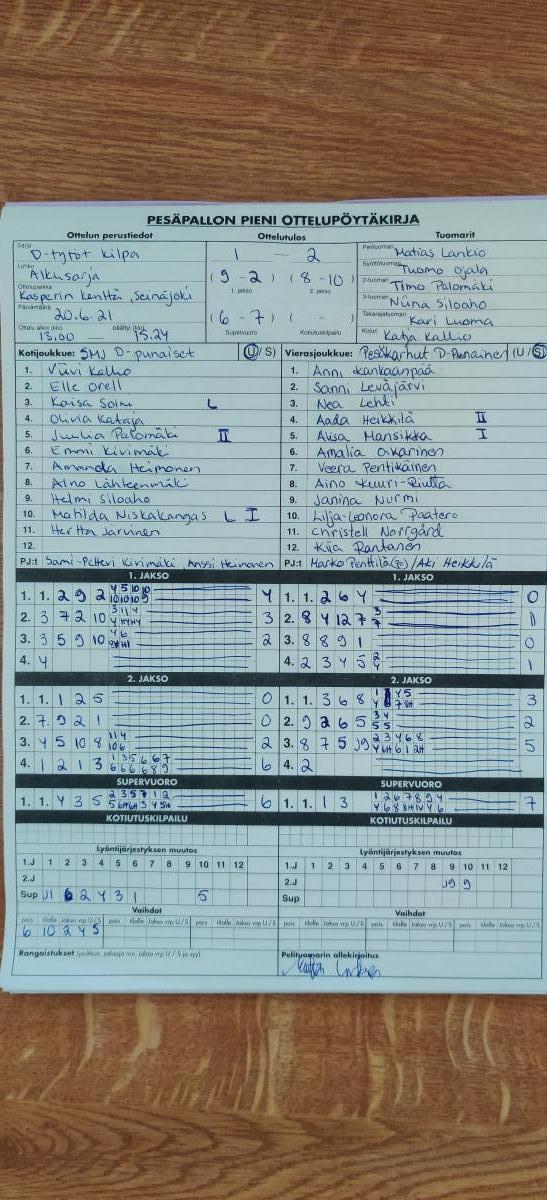 PESÄPALLON PIENI OTTELUPÖYTÄKIRJA
Ottelun perustiedot Ottelutulos Tuomarit
Sarja D-tytöt kilpa
Lohko Alkusarja
Ottelupaikka Kasperin kenttä, Seinäjoki
Päivämäärä 20.6.21
Ottelu alkoi (klo) 13.00 päättyi (klo) 15.24
1 - 2
(9 - 2) (8 - 10)
1. jakso 2. jakso
(6 - 7) ( - )
Supervuoro Kotiutuskilpailu
Pelituomari Matias Lankio
Syöttötuomari Tuomo Ojala
2-tuomari Timo Palomäki
3-tuomari Niina Siloaho
Takarajatuomari Kari Luoma
Kirjuri Katja Kallio
Kotijoukkue: SMJ D-punaiset (U/S)
1. Viivi Kallio
2. Elle Orell
3. Kaisa Soini L
4. Olivia Kataja
5. Juulia Palomäki II
6. Emmi Kivimäki
7. Amanda Heimonen
8. Aino Lähteenmäki
9. Helmi Siloaho
10. Matilda Niskakangas L I
11. Hertta Järvinen
12.
PJ:t Sami-Petteri Kivimäki Anssi Heimonen
Vierasjoukkue: Pesäkarhut D-Punainen (U/S)
1. Anni Kankaanpää
2. Sanni Leväjärvi
3. Nea Lehti
4. Aada Heikkilä II
5. Alisa Mansikka I
6. Amalia Oikarinen
7. Veera Pentikäinen
8. Aino Kuuri-Riutta
9. Janina Nurmi
10. Lilja-Leonora Paatero
11. Christell Norrgård
12. Kiia Rantanen
PJ:t Marko Penttilä(Po)/Aki Heikkilä
1. JAKSO
1. 1. 2 9 2 4
2. 3 7 2 10 3
3. 3 5 9 10 2
4. 4
1. JAKSO
1. 1. 2 6 4 0
2. 8 4 12 7 1
3. 8 8 9 1 0
4. 2 3 4 5 1
2. JAKSO
1. 1. 1 2 5 0
2. 7. 9 2 1 0
3. 4 5 10 8 2
4. 1 2 1 3 6
2. JAKSO
1. 1. 3 6 8 3
2. 9 2 6 5 2
3. 8 7 5 J9 5
4. 2
SUPERVUORO
1. 1. 4 3 5 6
SUPERVUORO
1. 1. 1 3 7
KOTIUTUSKILPAILU
KOTIUTUSKILPAILU
Lyöntijärjestyksen muutos
1.J 1 2 3 4 5 6 7 8 9 10 11 12
2.J
Sup J1 6 2 4 3 1 5
Lyöntijärjestyksen muutos
1.J 1 2 3 4 5 6 7 8 9 10 11 12
2.J J9 9
Sup
Vaihdot
pois tilalle Jakso vrp U/S pois tilalle Jakso vrp U/S pois
6 10 2 4 S
Vaihdot
Rangaistukset (joukkue, pelaaja nro, jakso vrp U / S ja syy)
Pelituomarin allekirjoitus